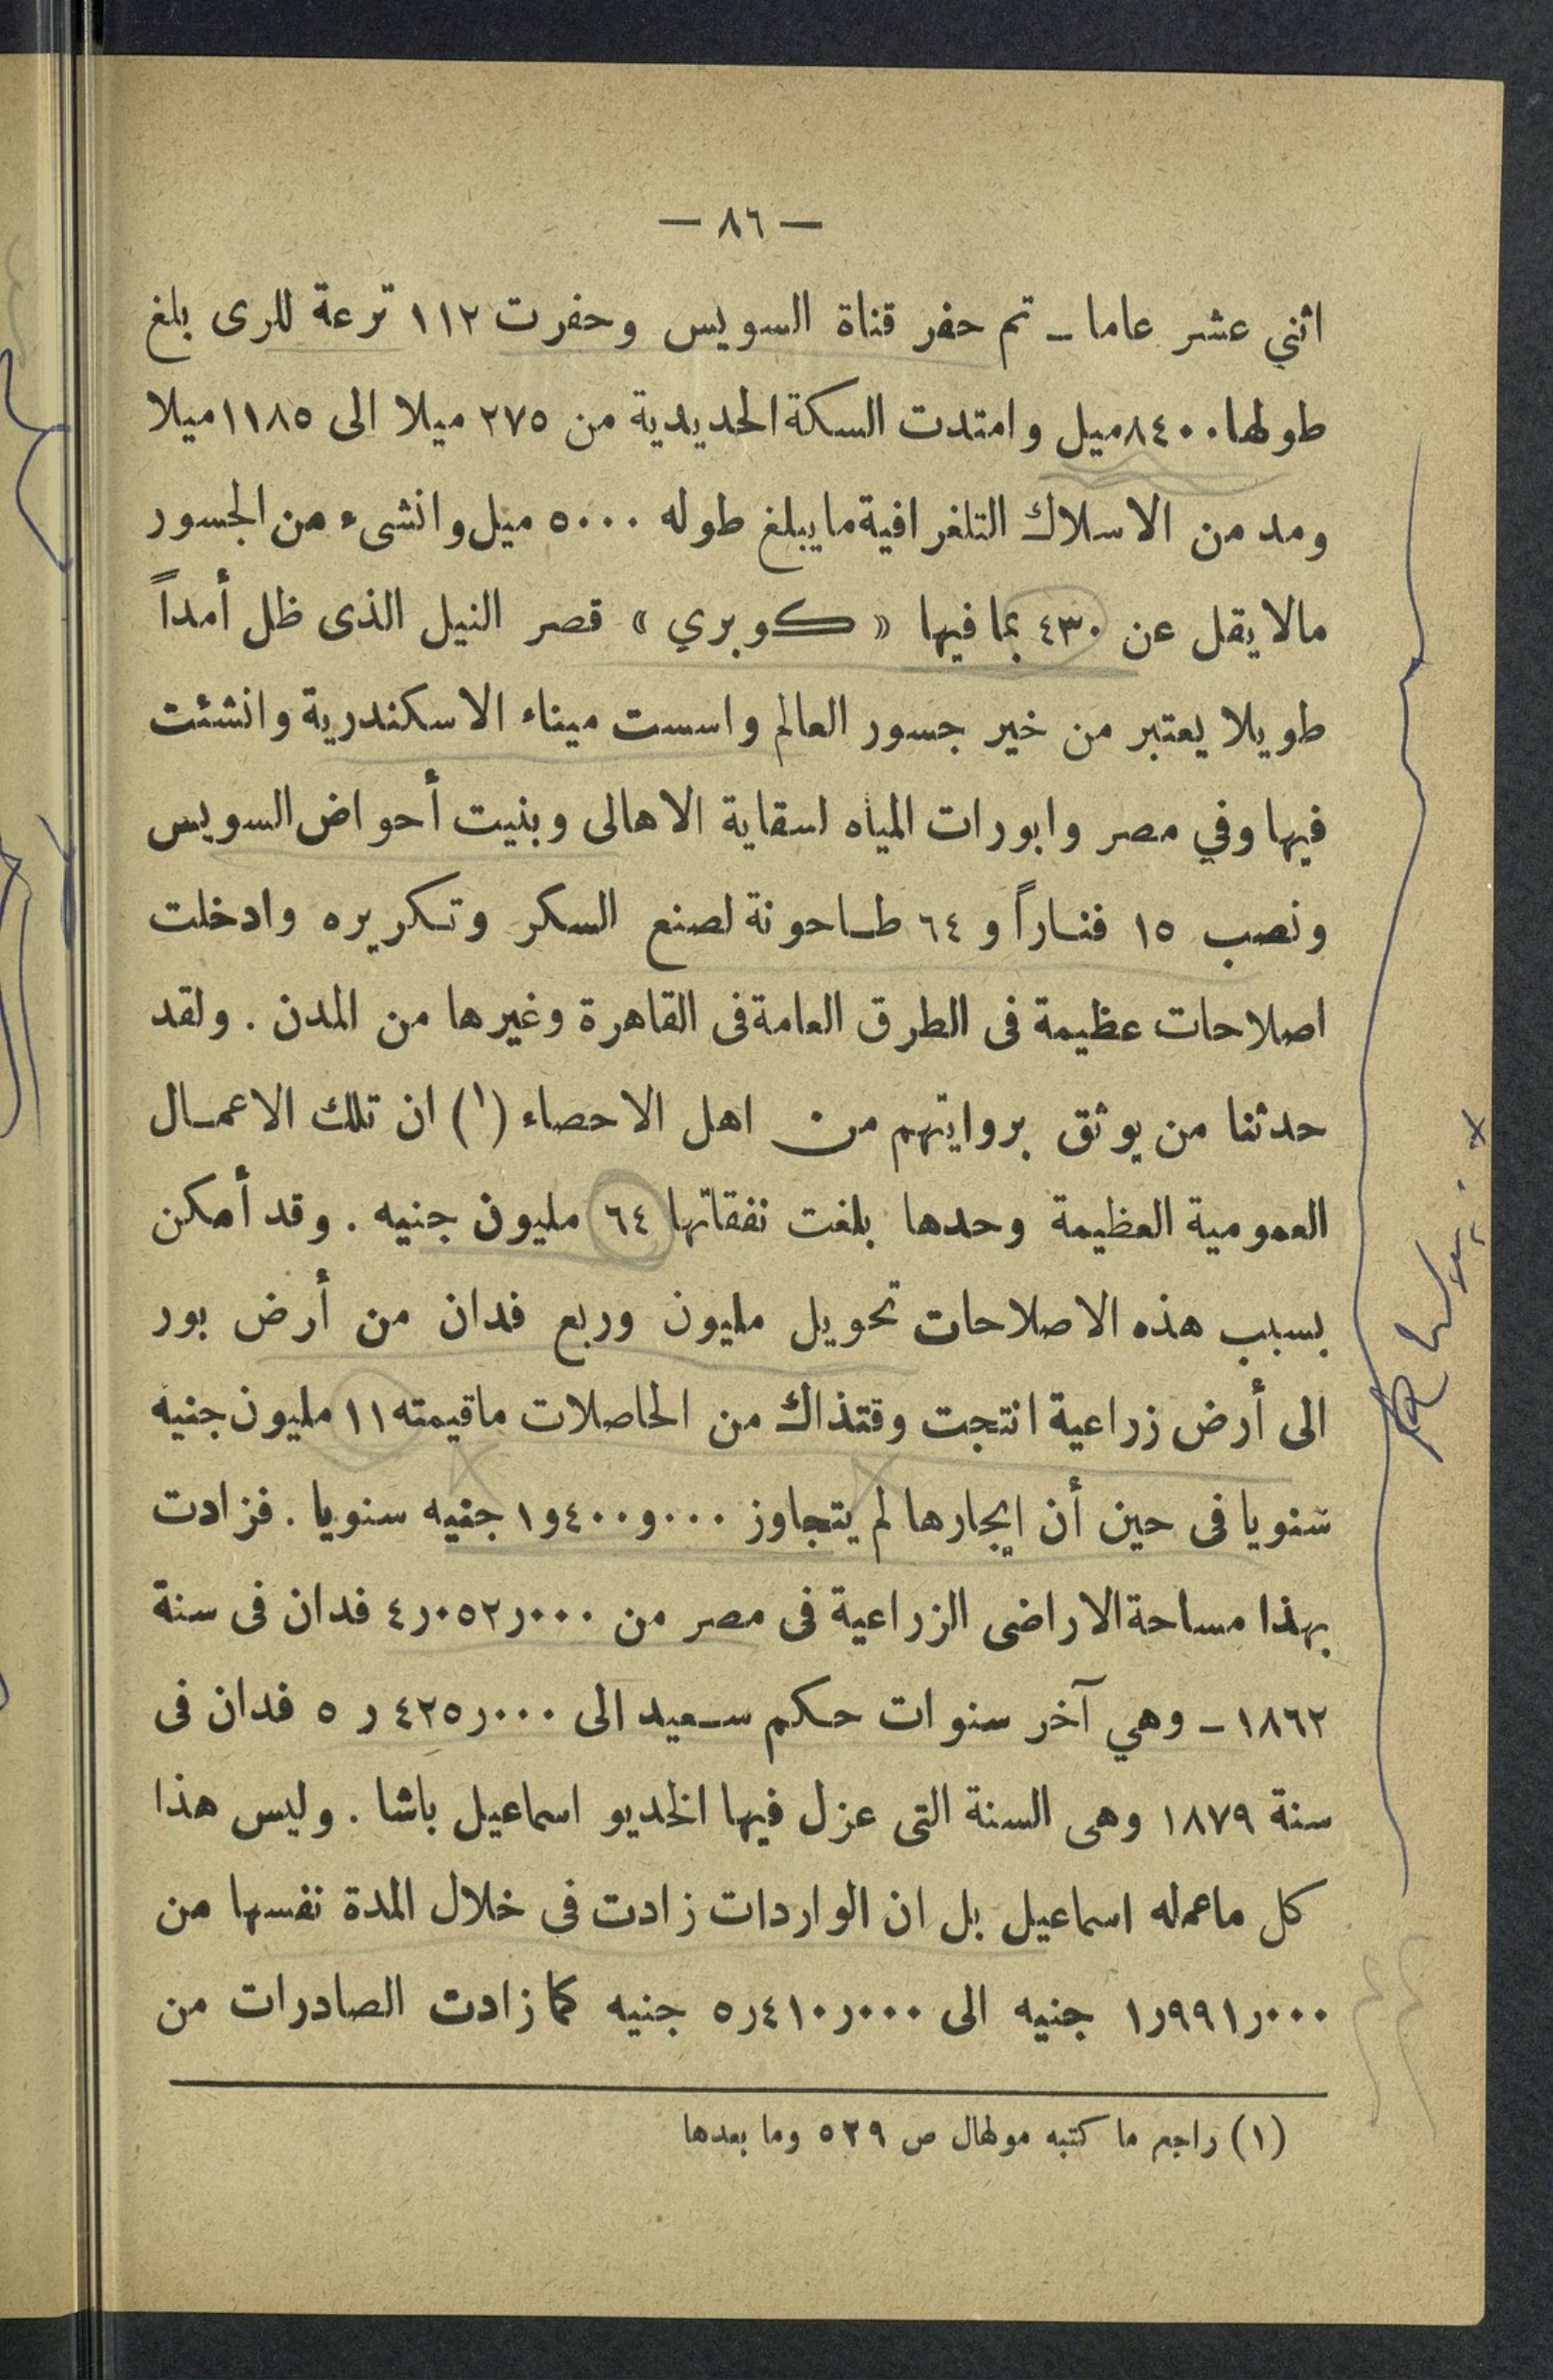 — ٨٦ —
اثني عشر عاما ــ تم حفر قناة السويس وحفرت ١١٢ ترعة للرى بلغ
طولها ٨٤٠٠ ميل وامتدت السكة الحديدية من ٢٧٥ ميلا الى ١١٨٥ ميلا
ومد من الاسلاك التلغرافية ما يبلغ طوله ٥٠٠٠ ميل وانشىء من الجسور
مالا يقل عن ٤٣٠ بما فيها « كوبري » قصر النيل الذى ظل أمداً
طويلا يعتبر من خير جسور العالم واسست ميناء الاسكندرية وانشئت
فيها وفي مصر وابورات المياه لسقاية الاهالى وبنيت أحواض السويس
ونصب ١٥ فناراً و ٦٤ طاحونة لصنع السكر وتكريره وادخلت
اصلاحات عظيمة فى الطرق العامة فى القاهرة وغيرها من المدن . ولقد
حدثنا من يوثق بروايتهم من اهل الاحصاء (١) ان تلك الاعمال
العمومية العظيمة وحدها بلغت نفقاتها ٦٤ مليون جنيه . وقد أمكن
بسبب هذه الاصلاحات تحويل مليون وربع فدان من أرض بور
الى أرض زراعية انتجت وقتذاك من الحاصلات ماقيمته ١١ مليون جنيه
سنويا فى حين أن ايجارها لم يتجاوز ١و٤٠٠و٠٠٠ جنيه سنويا . فزادت
بهذا مساحة الاراضى الزراعية فى مصر من ٤ر٠٥٢ر٠٠٠ فدان فى سنة
١٨٦٢ ــ وهي آخر سنوات حكم سعيد الى ٥ ر ٤٢٥ر٠٠٠ فدان فى
سنة ١٨٧٩ وهى السنة التى عزل فيها الخديو اسماعيل باشا . وليس هذا
كل ماعمله اسماعيل بل ان الواردات زادت فى خلال المدة نفسها من
١ر٩٩١ر٠٠٠ جنيه الى ٥ر٤١٠ر٠٠٠ جنيه كما زادت الصادرات من
(١) راجع ما كتبه مولهال ص ٥٢٩ وما بعدها